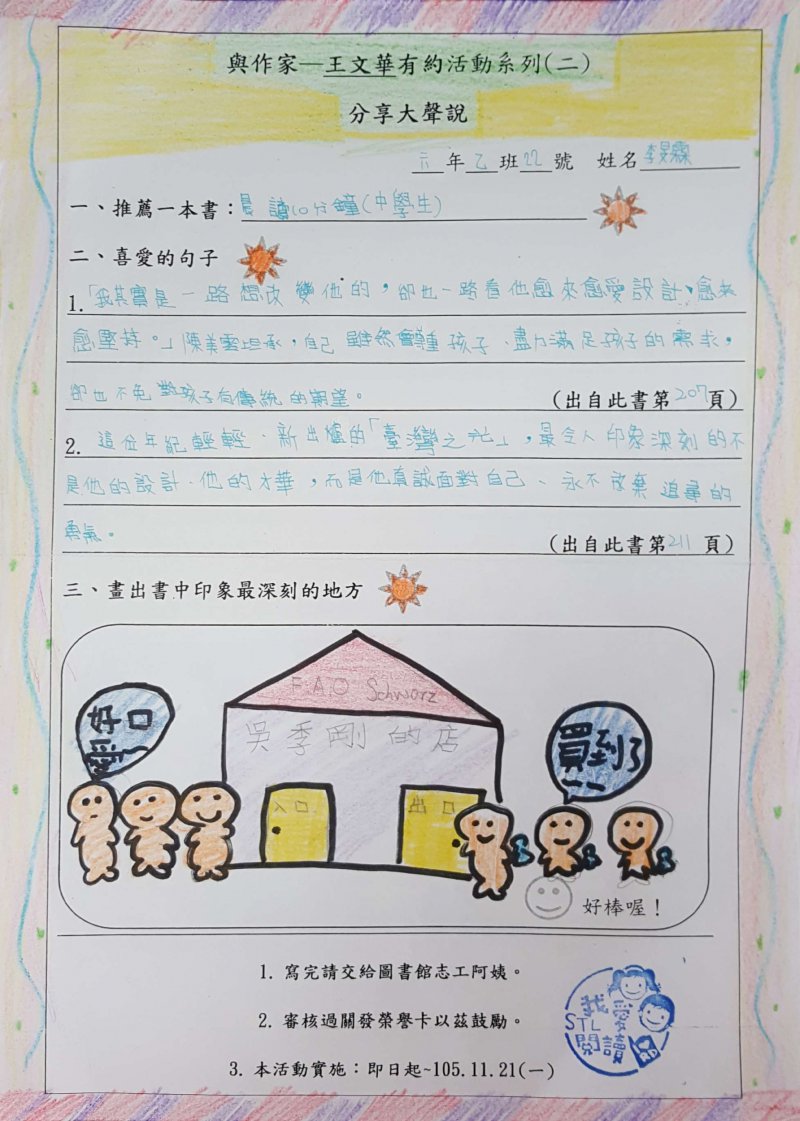 與作家—王文華有約活動系列(二)
分享大聲說
六年乙班22號 姓名李旻霖
一、推薦一本書：晨讀10分鐘(中學生)
二、喜愛的句子
1.「我其實是一路想改變他的，卻也一路看他愈來愈愛設計、愈來
愈堅持。」陳美雲坦承，自己雖然會尊重孩子、盡力滿足孩子的需求，
卻也不免對孩子有傳統的期望。 (出自此書第207頁)
2. 這位年記輕輕、新出爐的「臺灣之光」，最令人印象深刻的不
是他的設計、他的才華，而是他真誠面對自己、永不放棄追尋的
勇氣。 (出自此書第211頁)
三、畫出書中印象最深刻的地方
F.A.O Schworz
吳季剛的店
好口愛~
買到了
入口
出口
好棒喔！
1. 寫完請交給圖書館志工阿姨。
2. 審核過關發榮譽卡以茲鼓勵。
3. 本活動實施：即日起~105.11.21(一)
我愛
STL
閱讀